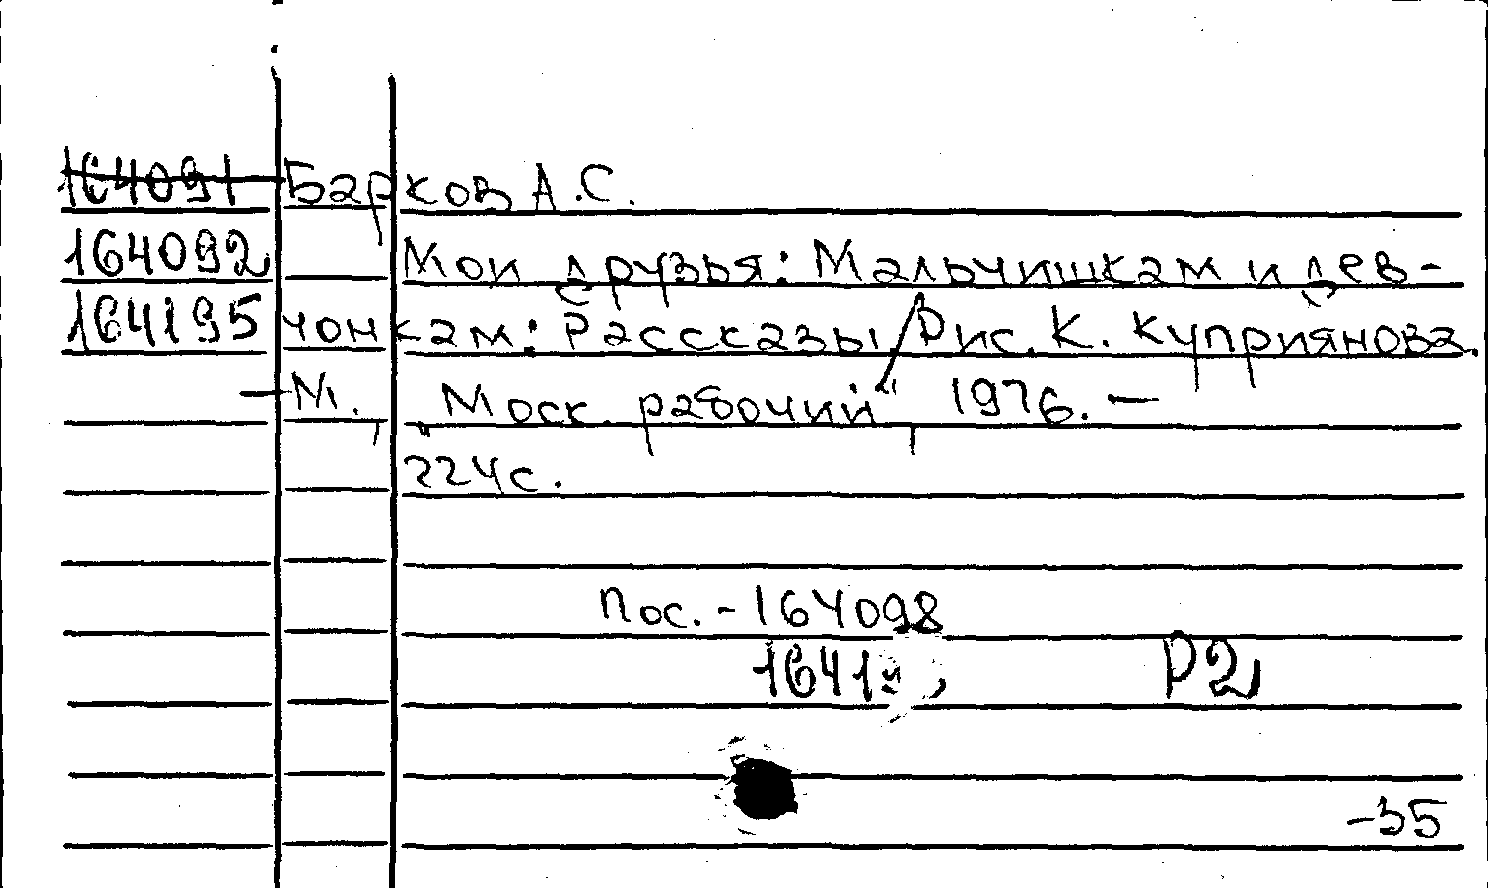 164091 Барков А.С.
164092 Мои друзья: Мальчишкам и дев-
164195 чонкам: Рассказы/Рис. К. Куприянова.
— М., „Моск. рабочий“, 1976. —
224с.
Пос. - 164098
Р2
-35